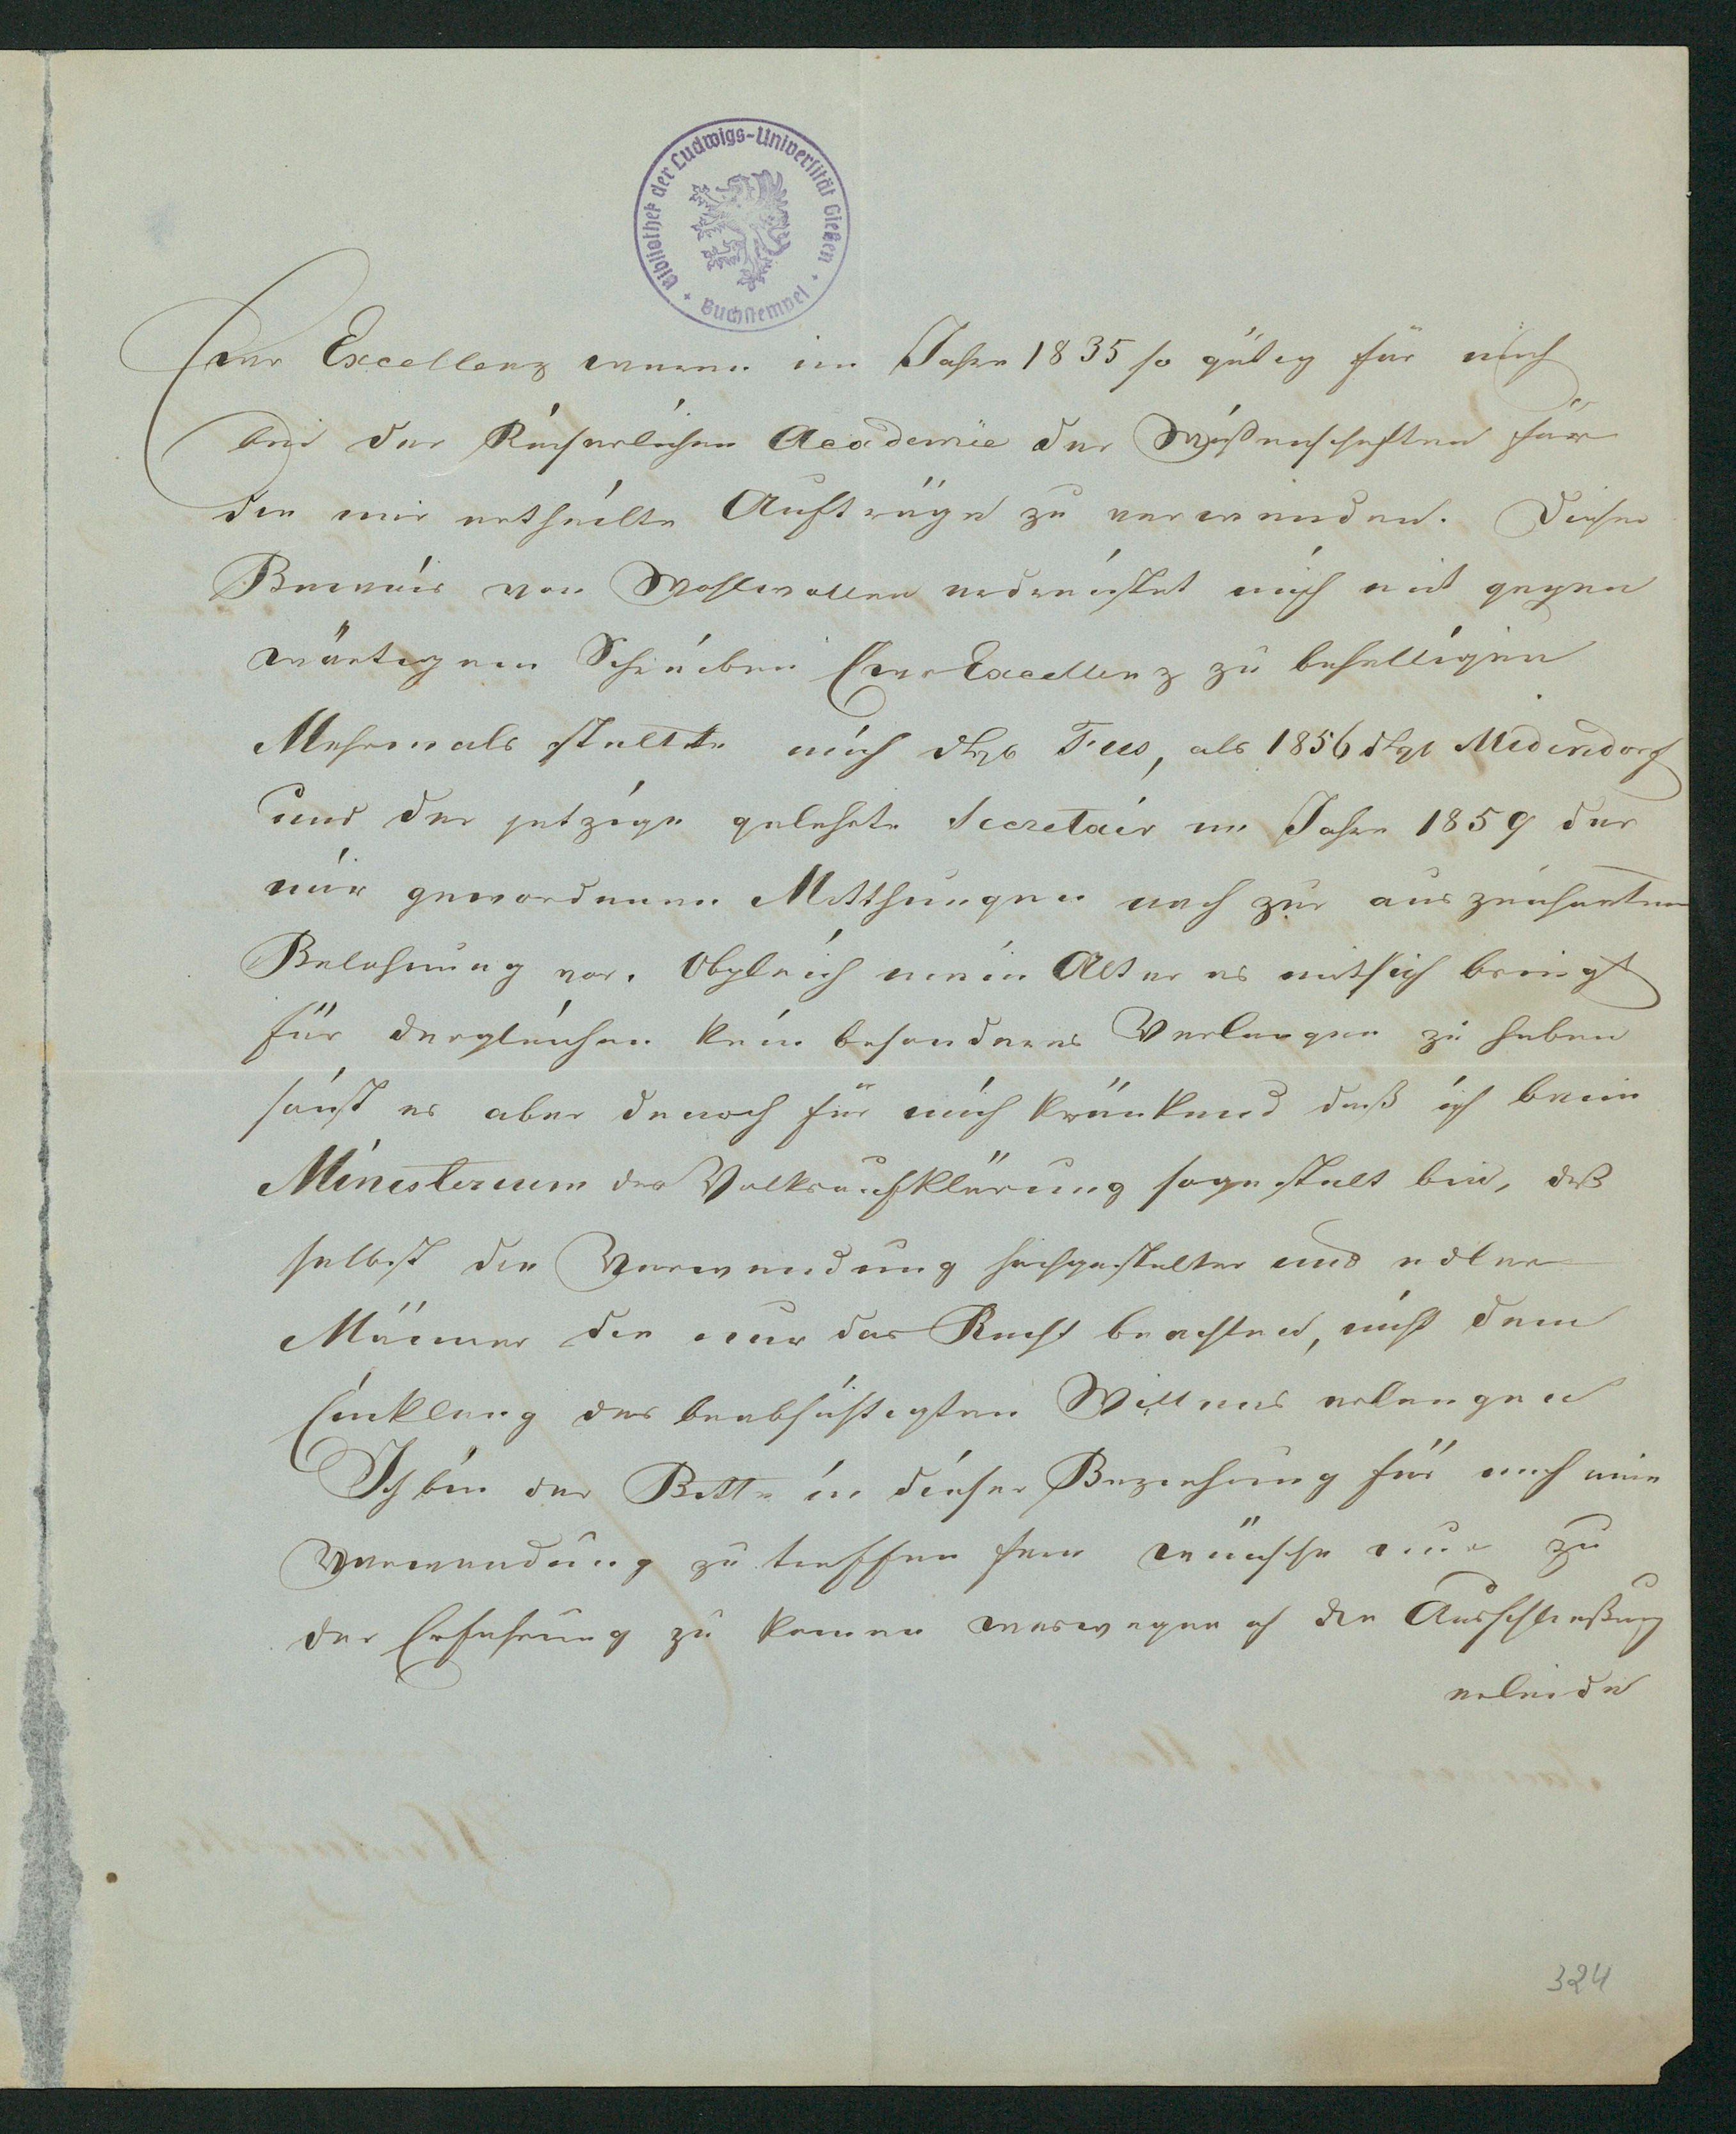 Bibliothek der Ludwigs-Universität Gießen
Buchstempel
Euer Excellenz waren im Jahre 1835 so gütig für mich
bei der Kaiserlichen Academie der Wißenschaften für
die mir ertheilte Aufträge zu verwenden. Dieser
Beweis von Wohlwollen mich mit gegen
wärtigem Schreiben Euer Excellenz zu behelligen
Mehrmals stellte mich Fus, als 1856 Midendorf
und der jetzige gelehrte Secretair im Jahre 1859 der
mir gewordenen noch zur
Belohnung vor. Obgleich mein Alter es mitsich bringt
für dergleichen kein besonderes Verlangen zu haben
so ist es aber denoch für mich kränkend daß ich beim
Ministerium der Volksaufklärung so gestelt bin, daß
selbst die Verwendung hochgestelter und edler
Männer die nur das Recht beachten, nicht dem
Einklang des beabsichtigten Willens erlangen
Ich bin der Bitte in dieser Beziehung für mich eine
Verwendung zu treffen fern wünsche nur zu
der Erfahrung zu komen weswegen ich die Ausschließung
erleide
324